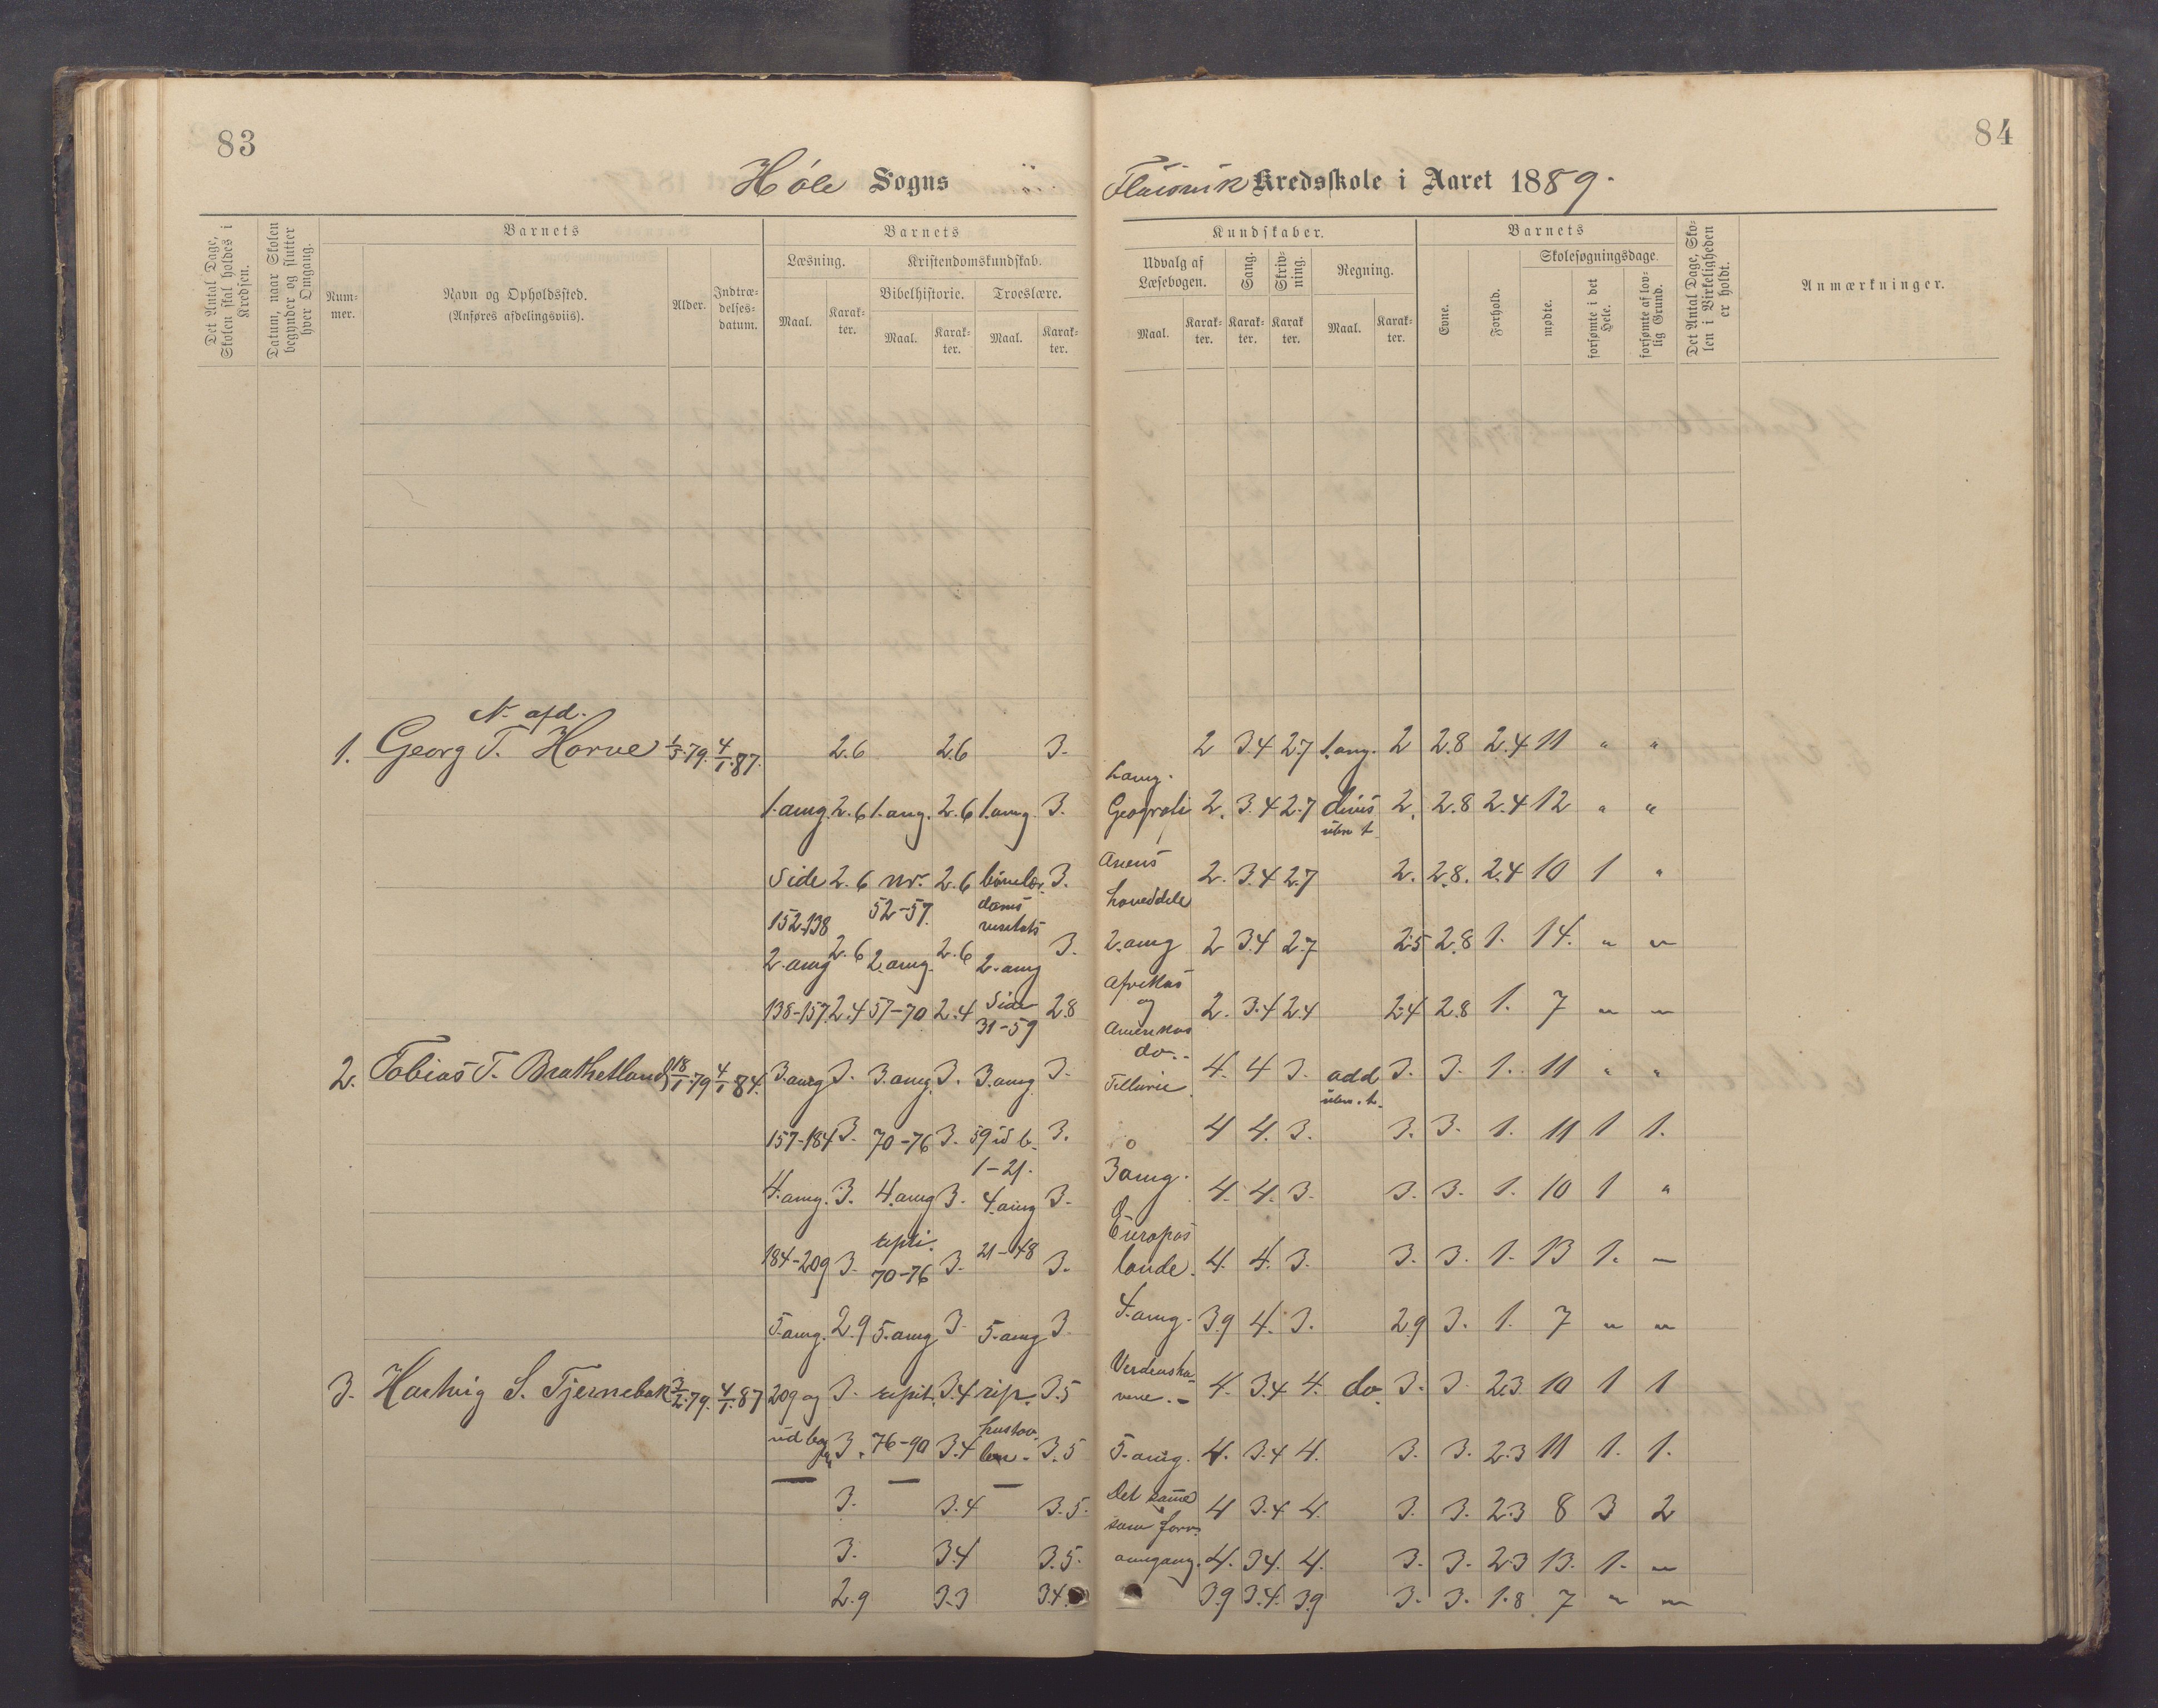 83
84
Høle Sogns
Kredsskole i Aaret 1889.
Det Antal Dage, Skolen skal holdes i Kredsen.
Datum, naar Skolen begynder og slutter hver Omgang.
Barnets
Num-
mer.
Navn og Opholdssted.
(Anføres afdelingsviis).
Alder.
Indtræ-
delses-
datum.
Barnets
Læsning.
Maal.
Karak-
ter.
Kristendomskundskab.
Bibelhistorie.
Maal.
Karak-
ter.
Troeslære.
Maal.
Karak-
ter.
Kundskaber.
Udvalg af
Læsebogen.
Maal.
Karak-
ter.
Sang.
Karak-
ter.
Skriv-
ning.
Karak
ter.
Regning.
Maal.
Karak-
ter.
Barnets
Evne.
Forhold.
Skolesøgningsdage.
mødte.
forsømte i det Hele.
forsømte af lov-
lig Grund.
Det Antal Dage, Sko-
len i Virkeligheden
er holdt.
Anmærkninger.
N. afd.
1. Georg T. Horve 1/5.79. 4/1.87. 2.6 2.6 3. 2 3.4 2.7 1.omg. 2 2.8 2.4 11 " "
1.omg. 2.6 1.omg. 2.6 1.omg. 3. Geografi 2. 3.4 2.7 2. 2.8 2.4 12 " "
Side 2.6 nr. 2.6 3. 2. 3.4 2.7 2. 2.8. 2.4 10 1 "
152-138 52-57. hoveddele
2.omg 2.6 2.omg. 2.6 2.omg 3. 2.omg 2 3.4 2.7 2.5 2.8 1. 14. " "
138-157. 2.4 57-70 2.4 Side 31-59 2.8 Afrikas og Amerikas 2. 3.4 2.4 2.4 2.8 1. 7 " "
2. Tobias T. Brathetland 18/1.79 4/1.84. 3.omg 3. 3.omg. 3. 3.omg. 3. do. 4. 4 3. add 3. 3. 1. 11 " "
157-184 3. 70-76 3. 3. 4 4. 3. 3. 3. 1. 11 1 1.
1-21. 3 omg.
4.omg. 3. 4.omg 3. 4.omg 3. 4. 4. 3. 3. 3. 1. 10 1 "
184-209 3. 70-76 3. 21-48 3. Europas lande. 4. 4. 3. 3. 3. 1. 13 1. "
5.omg. 2.9 5.omg 3. 5.omg 3. 4.omg. 3.9 4. 3. 2.9 3. 1. 7 " "
3. Hartvig S. Tjernebak 3/2.79. 4/1.87 209 og 3. repit. 3.4 rep. 3.5 4. 3.4 4. do. 3. 3. 2.3 10 1 1
3. 76-90 3.4 3.5 5.omg. 4. 3.4 4. 3. 3. 2.3 11 1. 1.
— 3. — 3.4 — 3.5. Det samme 4 3.4 4. 3. 3. 2.3 8 3 2
3. 3.4 3.5. som forr. omgang. 4. 3.4. 4. 3. 3. 2.3 13. 1. "
2.9 3.3 3.4 3.9 3.4. 3.9 3. 3. 1.8 7 " "